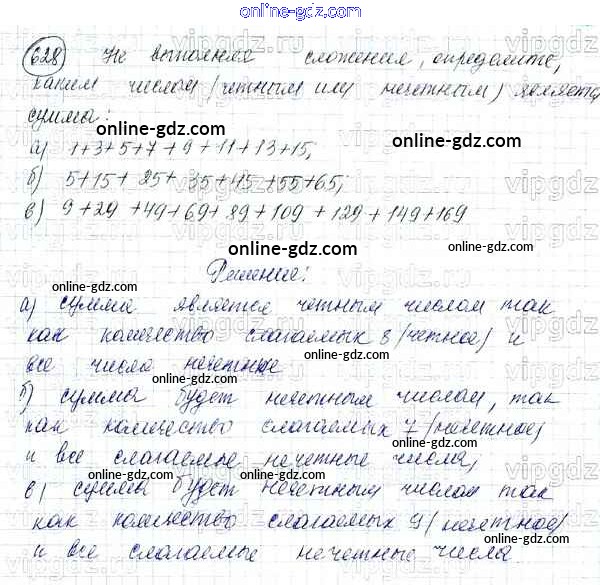 628 Не выполняя сложения, определите,
каким числом (четным или нечетным) является
сумма:
а) 1+3+5+7+9+11+13+15;
б) 5+15+25+35+45+55+65;
в) 9+29+49+69+89+109+129+149+169
Решение:
а) сумма является четным числом так
как количество слагаемых 8 (четное) и
все числа нечетные
б) сумма будет нечетным числом, так
как количество слагаемых 7 (нечетное)
и все слагаемые нечетные числа;
в) суммы будет нечетным числом так
как количество слагаемых 9 (нечетное)
и все слагаемые нечетные числа
online-gdz.com
online-gdz.com
online-gdz.com
online-gdz.com
online-gdz.com
online-gdz.com
online-gdz.com
online-gdz.com
online-gdz.com
online-gdz.com
online-gdz.com
online-gdz.com
online-gdz.com